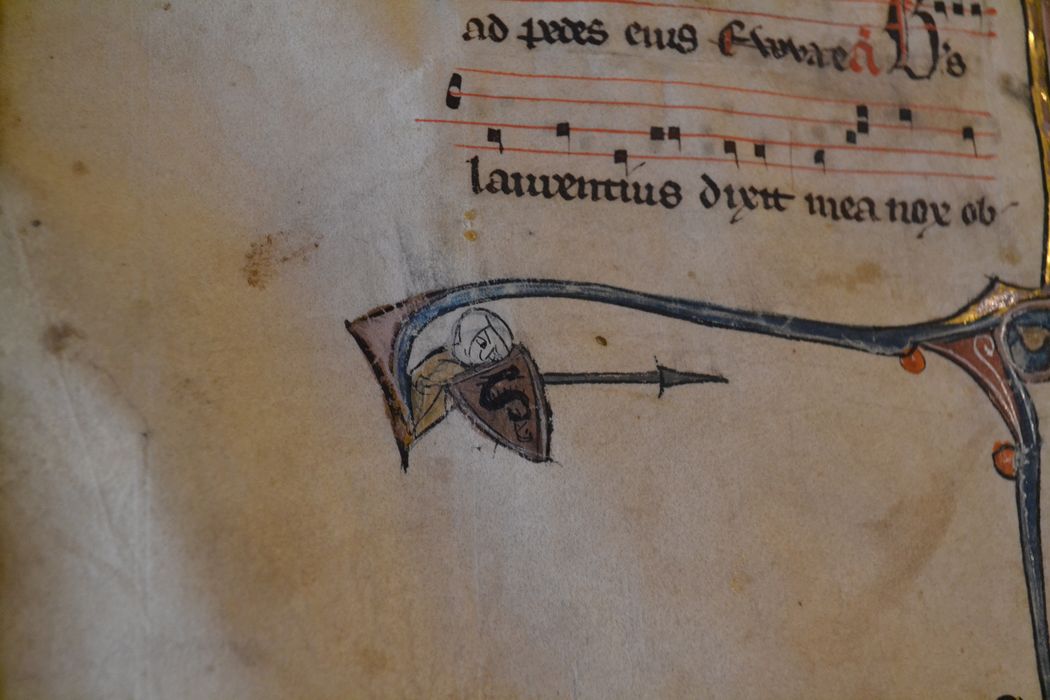 ad pedes eius Euouae a B's
laurentius dixit mea nox ob